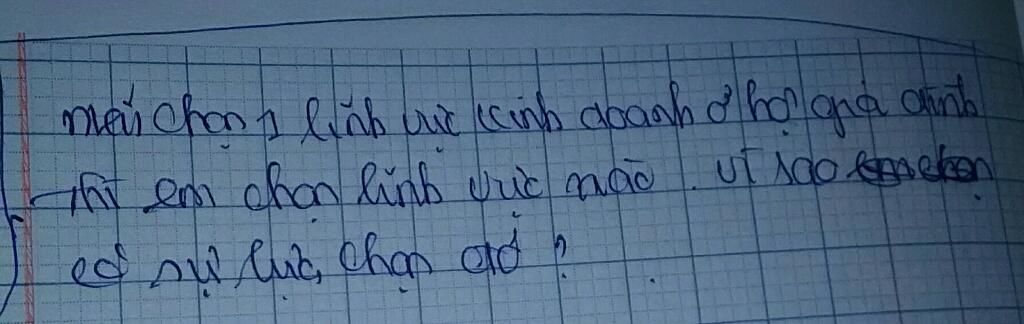 nếu chọn 1 lĩnh vực kinh doanh ở hộ gia đình
thì em chọn lĩnh vực nào. vì sao
có sự lực chọn đó?